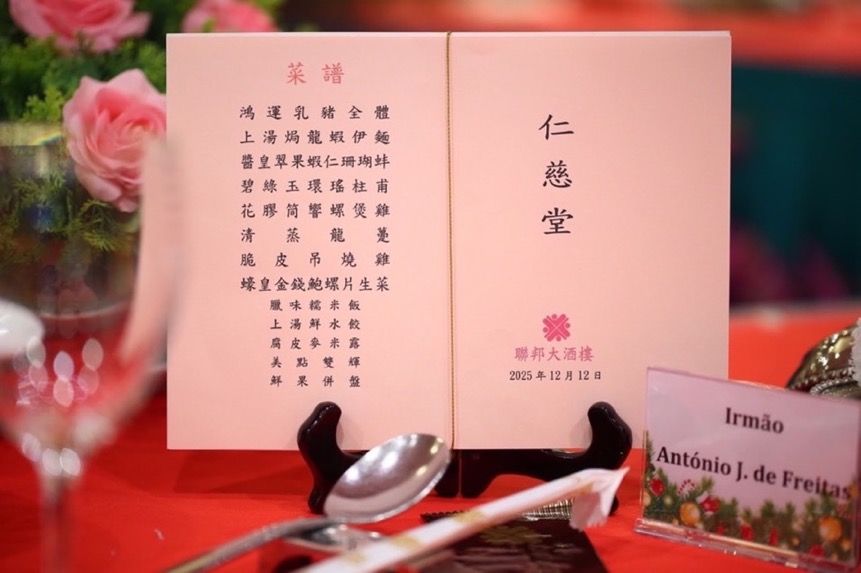 菜譜
鴻運乳豬全體
上湯焗龍蝦伊麵
醬皇翠果蝦仁珊瑚蚌
碧綠玉環瑤柱甫
花膠筒響螺煲雞
清蒸龍躉
脆皮吊燒雞
蠔皇金錢鮑螺片生菜
臘味糯米飯
上湯鮮水餃
腐皮麥米露
美點雙輝
鮮果併盤
仁慈堂
聯邦大酒樓
2025年12月12日
Irmão
António J. de Freitas